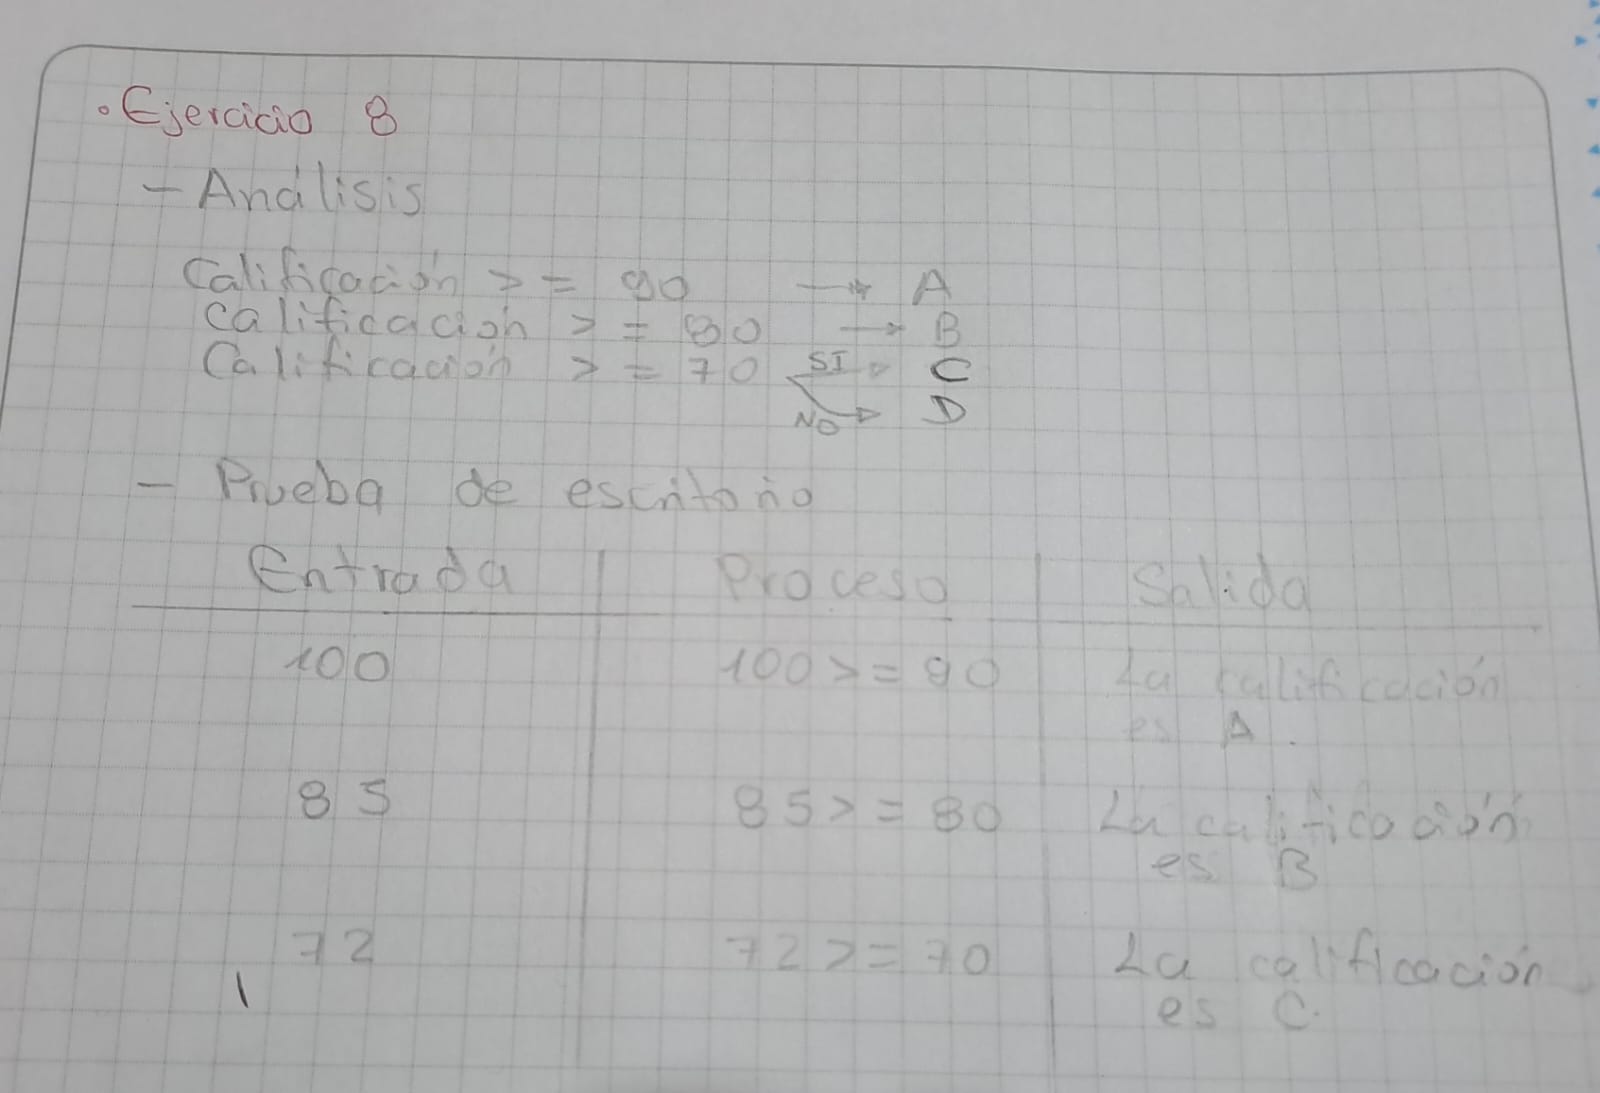 • Ejercicio 8
- Análisis
Calificación >= 90 → A
Calificación >= 80 → B
Calificación >= 70 SI → C
NO → D
- Prueba de escritorio
Entrada | Proceso | Salida
100 | 100 >= 90 | La calificación
es A.
85 | 85 >= 80 | La calificación
es B
72 | 72 >= 70 | La calificación
es C.